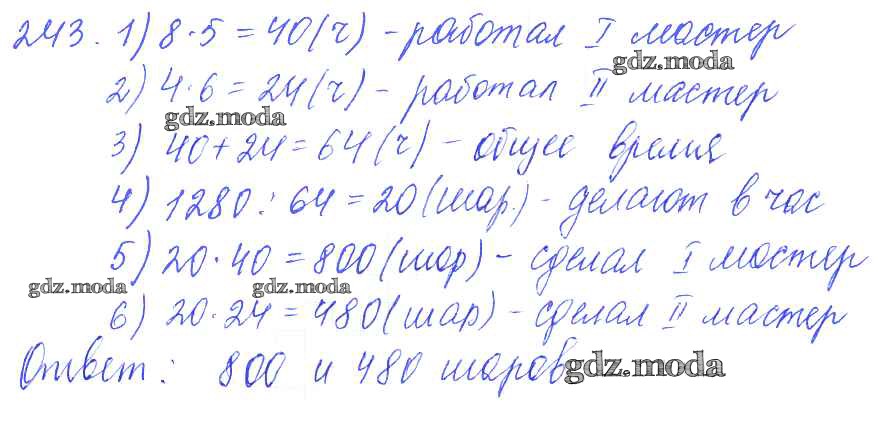 243. 1) 8·5=40(ч) - работал I мастер
gdz.moda
2) 4·6=24(ч) - работал II мастер
gdz.moda
3) 40+24=64(ч) - общее время
4) 1280:64=20(шар.) - делают в час
5) 20·40=800(шар) - сделал I мастер
gdz.moda gdz.moda
6) 20·24=480(шар) - сделал II мастер
Ответ: 800 и 480 шаров
gdz.moda